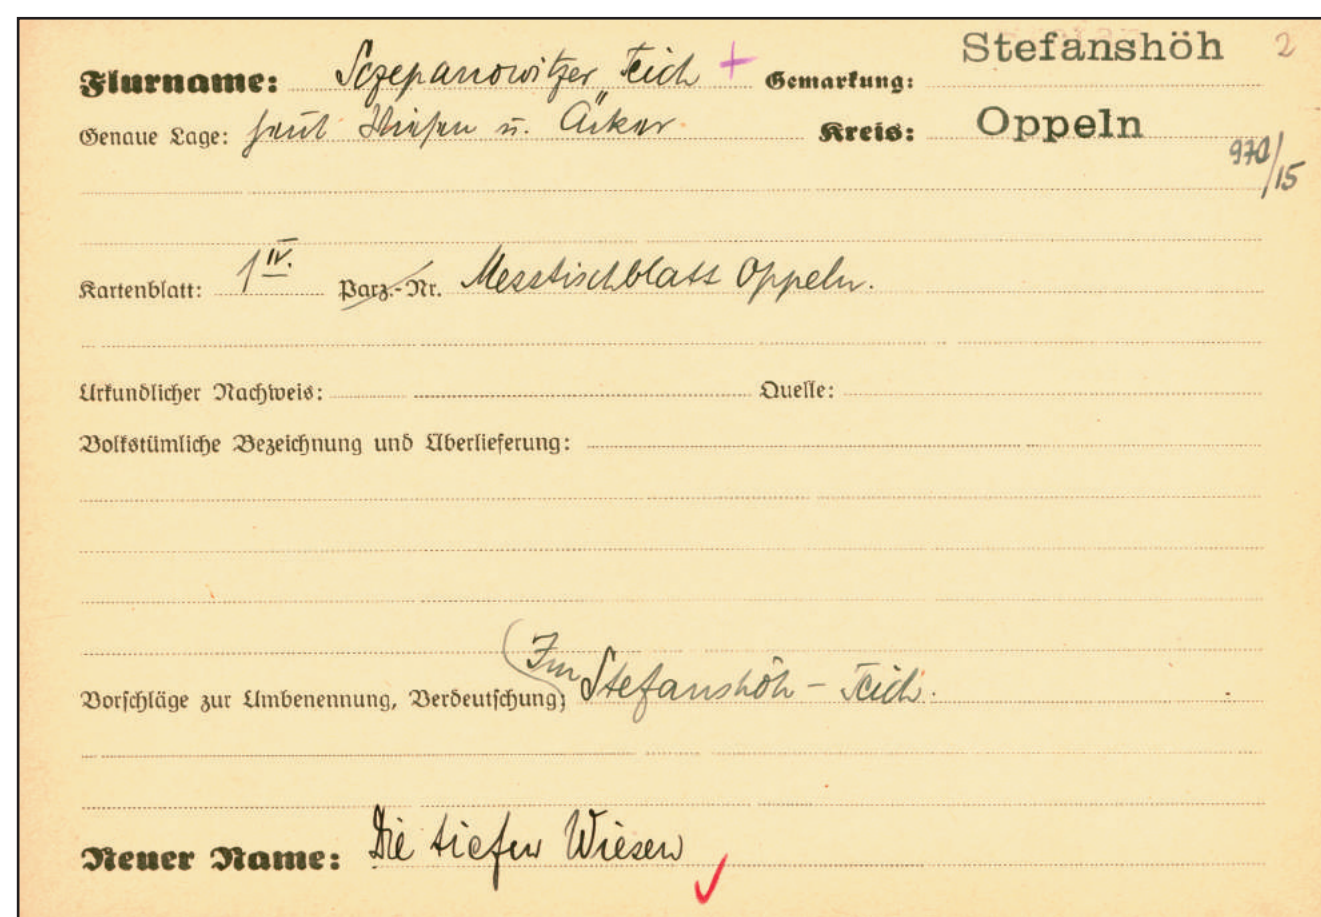 Stefanshöh 2
Flurname: Sczepanowitzer Teich + Gemarkung:
Genaue Lage: heut Wiesen u. Äcker Kreis: Oppeln
970/15
Kartenblatt: 1 IV. Parz.-Nr. Messtischblatt Oppeln.
Urkundlicher Nachweis: Quelle:
Volkstümliche Bezeichnung und Überlieferung:
Im
Vorschläge zur Umbenennung, Verdeutschung: Stefanshöh - Teich.
Neuer Name: Die tiefen Wiesen